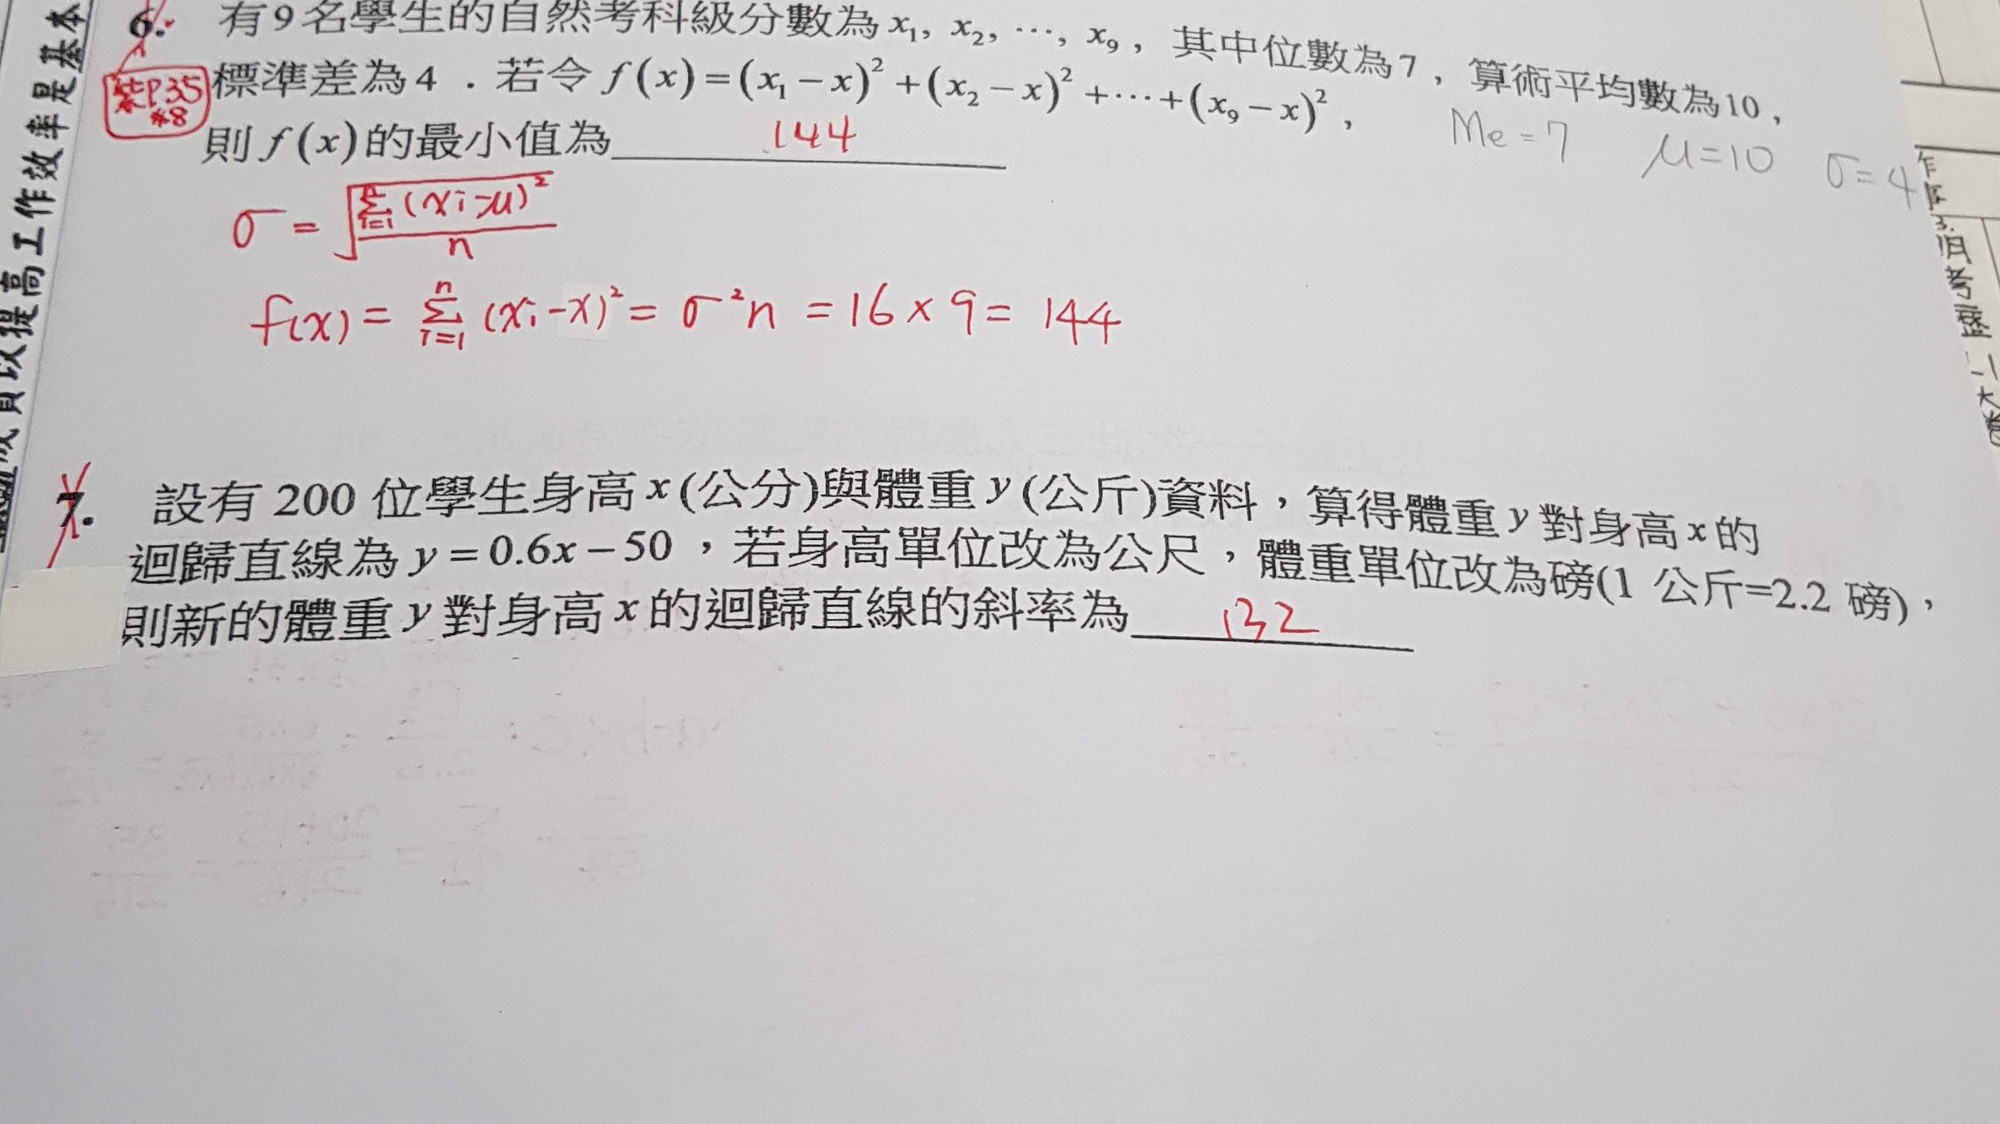 6. 有9名學生的自然考科級分數為 x₁, x₂, ⋯, x₉, 其中位數為7, 算術平均數為10,
紫P35
#8
標準差為4. 若令 f(x)=(x₁−x)²+(x₂−x)²+⋯+(x₉−x)²,
則 f(x) 的最小值為 144
Me=7 μ=10 σ=4
σ = √(Σᵢ₌₁ⁿ(xi-μ)²/n)
f(x) = Σᵢ₌₁ⁿ (xi-x)² = σ²n = 16×9 = 144
7. 設有 200 位學生身高 x (公分)與體重 y (公斤)資料,算得體重 y 對身高 x 的
迴歸直線為 y = 0.6x − 50,若身高單位改為公尺,體重單位改為磅(1 公斤=2.2 磅),
則新的體重 y 對身高 x 的迴歸直線的斜率為 132
以提高工作效率是基本